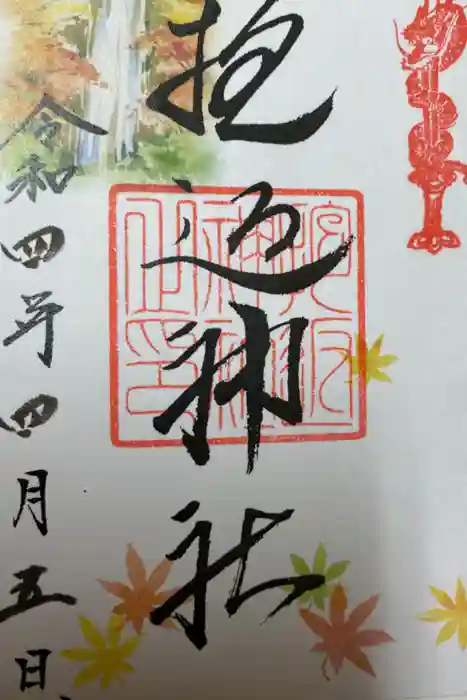 抱返神社
令和四年四月五日